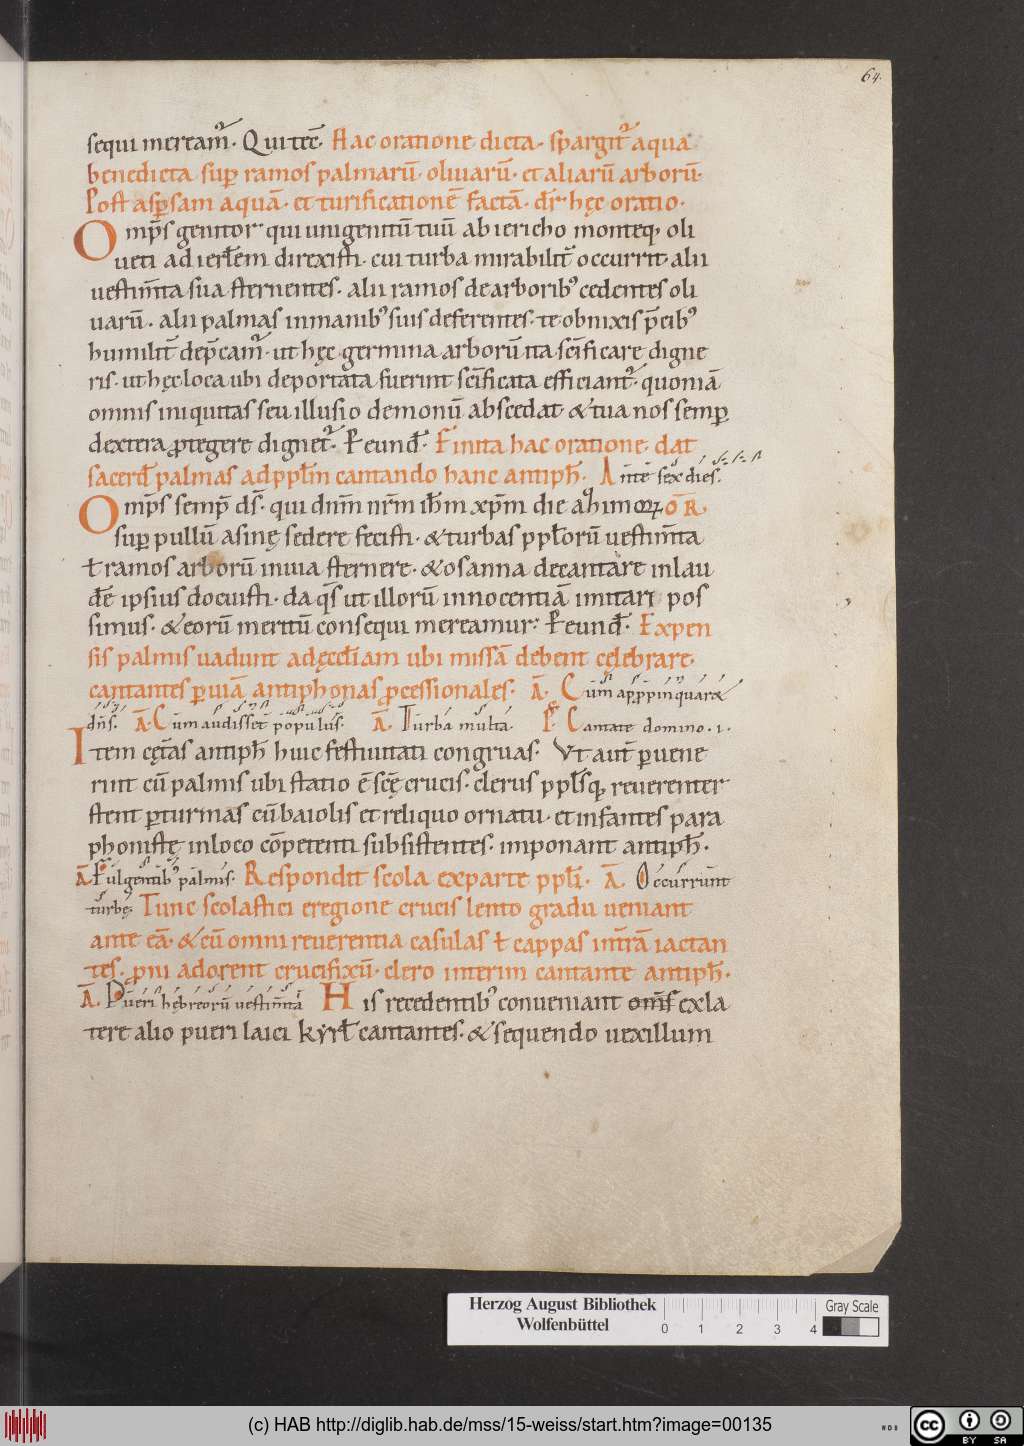 64.
sequi meream̄. Qui tec̄. Hac oratione dicta. spargit᷑ aqua
benedicta sup̱ ramos palmarū. oliuarū. et aliarū arborū.
Post asp̱sam aquā. et turificationē factā. dr̄ hęc oratio.
Omp̄s genitor qui unigenitū tuū ab iericho monteq; oli
ueti ad ierl̄em direxisti. cui turba mirabilit̄ occurrit. alii
uestim̄ta sua sternentes. alii ramos de arborib; cedentes oli
uarū. alii palmas in manib; suis deferentes. te obnixis p̄cib;
humilit̄ dep̄cam᷑. ut hęc germina arborū ita sc̄ificare digne
ris. ut hęc loca ubi deportata fuerint sc̄ificata efficiant᷑. quoniā
omnis iniquitas seu illusio demonū abscedat. & tua nos semp̱
dextera ꝓtegere dignet᷑. P̱ eund̄. Finita hac oratione. dat
sacerd̄ palmas ad ppl̄m cantando hanc antiph̄. Ante sex dies.
Omp̄s semp̄ ds̄. qui dn̄m nr̄m ih̄m xp̄m die azimoꝝ OR̄.
sup̱ pullū asinę sedere fecisti. & turbas ppl̄orū uestim̄ta
ł ramos arborū in uia sternere. & osanna decantare in lau
dē ipsius docuisti. da q̄s ut illorū innocentiā imitari pos
simus. & eorū meritū consequi mereamur. P̱ eund̄. Expen
sis palmis uadunt ad ęccl̄iam ubi missā debent cęlebrare.
cantantes p̱ uiā antiphonas ꝓcessionales. Ā. Cū app̄pinquaret
dn̄s. Ā. Cum audisset populus. Ā. Turba multa. Ps. Cantate domino. i.
Item cęt̄as antiph̄ huic festiuitati congruas. Vt aut̄ p̱uene
rint cū palmis ubi statio ē sc̄ę crucis. clerus ppl̄sq; reuerenter
stent p̱ turmas cū baiolis et reliquo ornatu. et infantes para
phonistę in loco cōpetenti subsistentes. imponant antiph̄.
Ā. Fulgentib; palmis. Respondit scola ex parte ppl̄i. Ā. Occurrunt
turbę. Tunc scolastici e regione crucis lento gradu ueniant
ante eā. & cū omni reuerentia casulas ł cappas in t̄rā iactan
tes. ꝓni adorent crucifixū. clero interim cantante antiph̄.
Ā. Pueri hebreorū uestim̄ta His recedentib; conueniant om̄s ex la
tere alio pueri laici kyrł cantantes. & sequendo uexillum
Herzog August Bibliothek
Wolfenbüttel
0 1 2 3 4
Gray Scale
(c) HAB http://diglib.hab.de/mss/15-weiss/start.htm?image=00135
HAB
cc BY SA